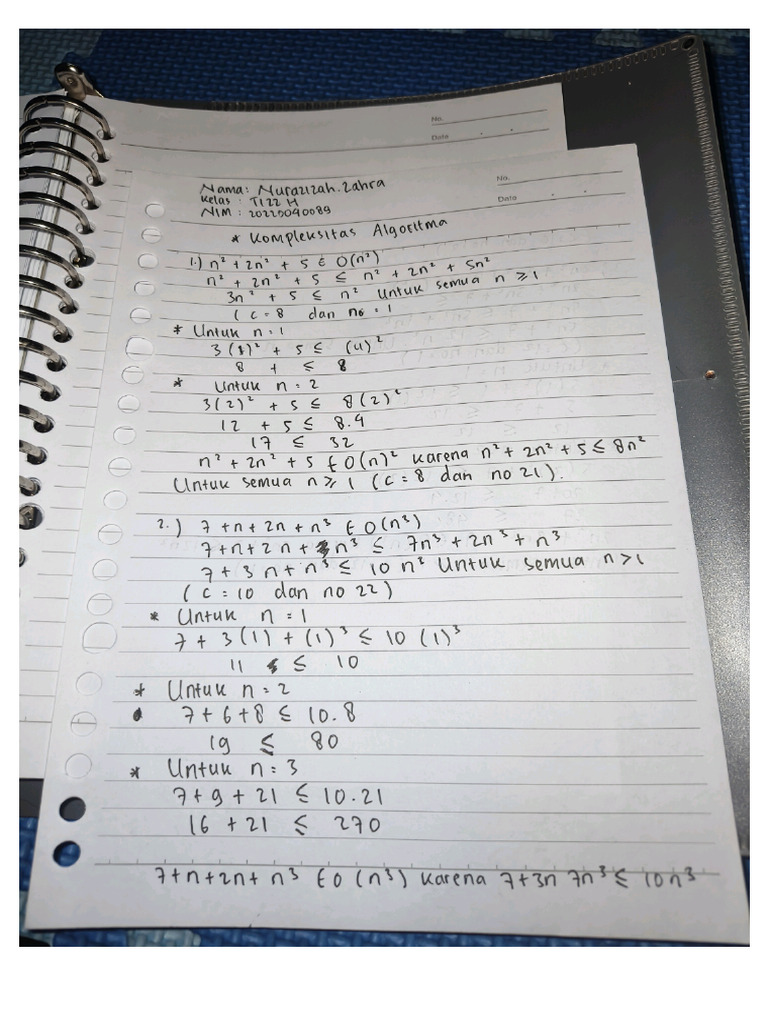 No.
Date
No.
Date
Nama: Nurazizah.Zahra
Kelas : TI22 H
NIM : 20220040089
* Kompleksitas Algoritma
1.) n² + 2n² + 5 ∈ O(n²)
n² + 2n² + 5 ≤ n² + 2n² + 5n²
3n² + 5 ≤ n² Untuk semua n ≥ 1
( c = 8 dan no = 1
* Untuk n = 1
3(1)² + 5 ≤ (4)²
8 + ≤ 8
* Untuk n = 2
3(2)² + 5 ≤ 8(2)²
12 + 5 ≤ 8.4
17 ≤ 32
n² + 2n² + 5 ∈ O(n)² karena n² + 2n² + 5 ≤ 8n²
Untuk semua n ≥ 1 (c = 8 dan no 21).
2.) 7 + n + 2n + n³ ∈ O(n³)
7 + n + 2n + n³ ≤ 7n³ + 2n³ + n³
7 + 3n + n³ ≤ 10n³ Untuk semua n > 1
( c = 10 dan no 22)
* Untuk n = 1
7 + 3(1) + (1)³ ≤ 10 (1)³
11 ≤ 10
* Untuk n = 2
7 + 6 + 8 ≤ 10.8
19 ≤ 80
* Untuk n = 3
7 + 9 + 21 ≤ 10.21
16 + 21 ≤ 270
7 + n + 2n + n³ ∈ O (n³) karena 7 + 3n 7n³ ≤ 10n³